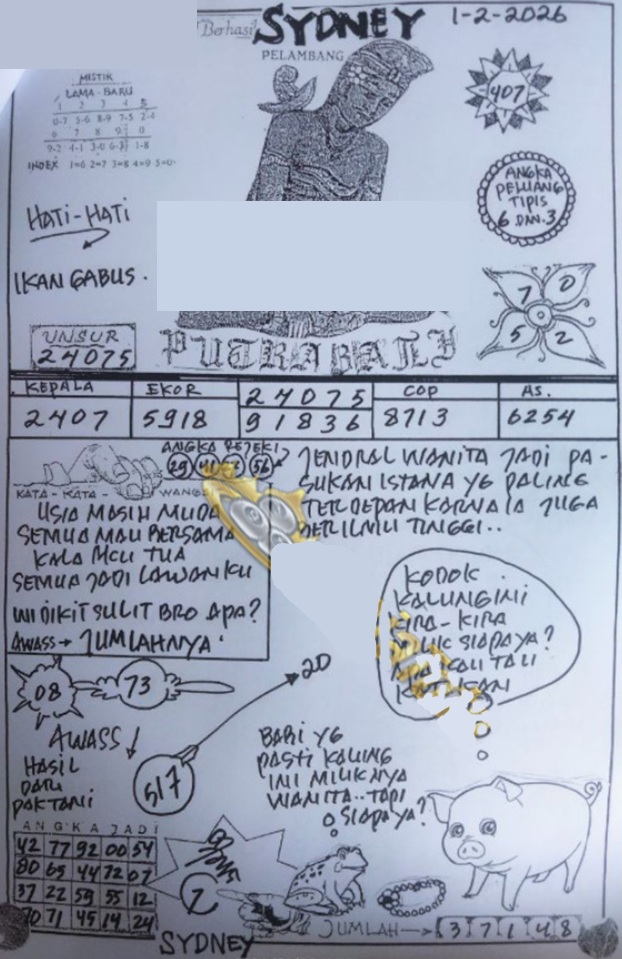 "Berhasil
SYDNEY
1-2-2026
PELAMBANG
MISTIK
LAMA - BARU
1 2 3 4 5
0-7 5-6 8-9 7-5 2-4
6 7 8 9 0
9-2 4-1 3-0 6-3 1-8
INDEX 1=6 2=7 3=8 4=9 5=0
407
ANGKA
PELUANG
TIPIS
6 DAN 3
HATI-HATI
IKAN GABUS.
7 0
5 2
UNSUR
24075
PUTRA BALI
KEPALA EKOR 24075 COP AS.
2407 5918 91836 8713 6254
ANGKA REJEKI
29 41 56
KATA - KATA - WANGSIT
USIA MASIH MUDA
SEMUA MAU BERSAMA
KALA MULI TUA
SEMUA JADI LAWANKU
INI DIKIT SULIT BRO APA?
AWASS → JUMLAHNYA
JENDRAL WANITA JADI PA-
SUKAN ISTANA YG PALING
TERDEPAN KARNA IA JUGA
BERILMU TINGGI..
KODOK
KALUNG INI
KIRA-KIRA
MILIK SIAPA YA?
APA KALI TALI
KATAKAN
08
73
20
AWASS
HASIL
DARI
PAKTANI
517
BABI YG
PASTI KALUNG
INI MILIKNYA
WANITA.. TAPI
SIAPA YA?
ANGKA JADI
42 77 92 00 54
80 65 44 72 07
37 22 59 55 12
70 71 45 14 24
7
SYDNEY
JUMLAH → 3 7 1 4 8